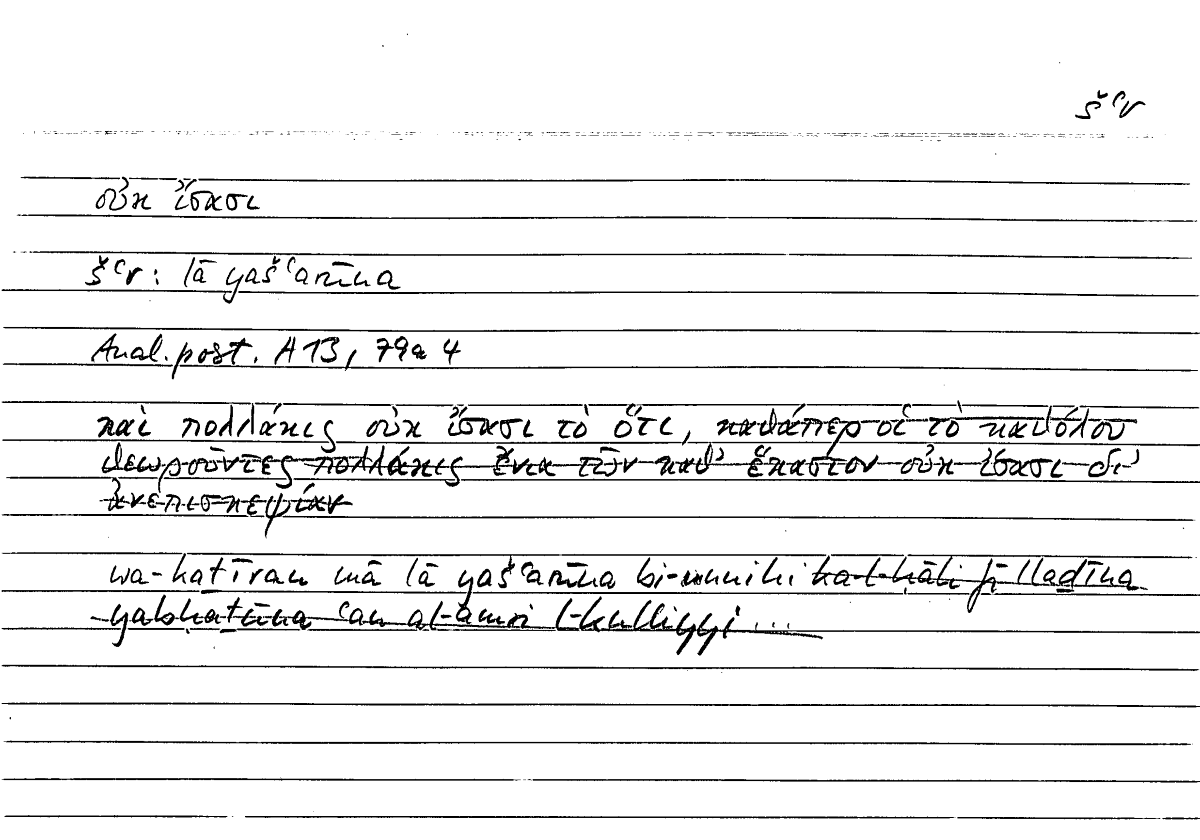 šʿr
οὐκ ἴσασι
šʿr: lā yašʿarūna
Anal. post. A 13, 79a 4
καὶ πολλάκις οὐκ ἴσασι τὸ ὅτι, καθάπερ οἱ τὸ καθόλου
θεωροῦντες πολλάκις ἔνια τῶν καθ' ἕκαστον οὐκ ἴσασι δι'
ἀνεπισκεψίαν
wa-kaṯīran mā lā yašʿarūna bi-annihi ka-l-ḥāli fī llaḏīna
yabḥaṯūna ʿan al-amri l-kulliyyi ...